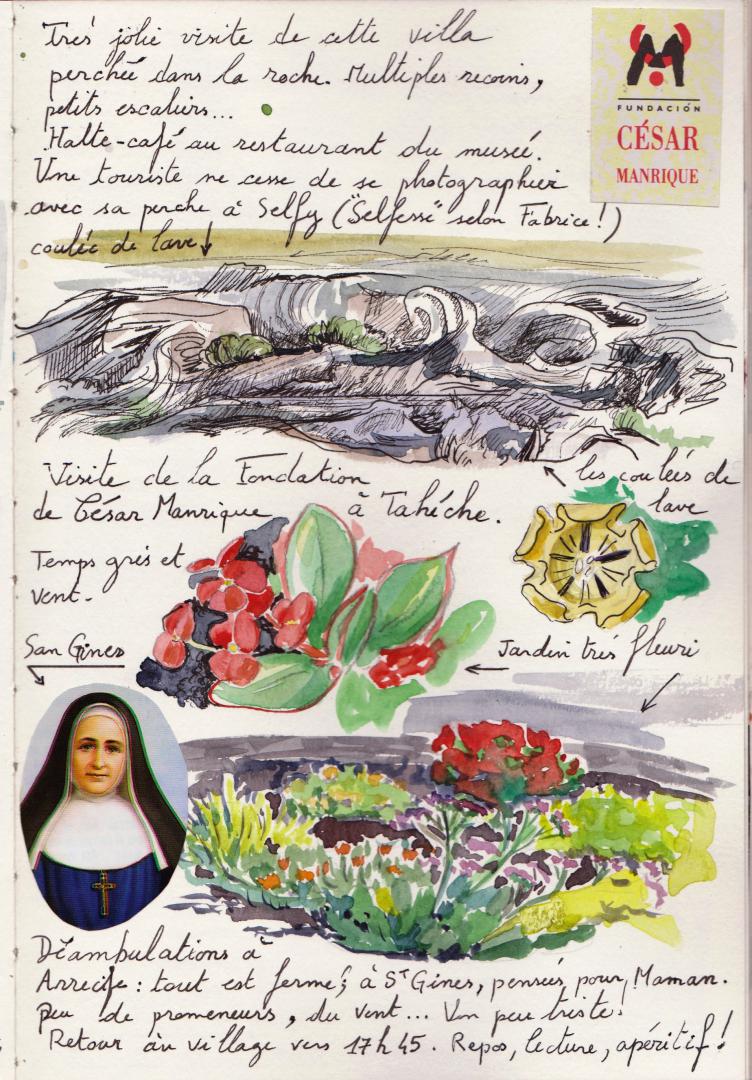 Très jolie visite de cette villa
perchée dans la roche. Multiples recoins,
petits escaliers...
Halte-café au restaurant du museé.
Une touriste ne cesse de se photographier
avec sa perche à Selfy ("Selfesse" selon Fabrice!)
FUNDACIÓN
CÉSAR
MANRIQUE
coulée de lave
Visite de la Fondation
de César Manrique à Tahiche.
les coulées de
lave
Temps gris et
vent.
San Gines
Jardin très fleuri
Déambulations à
Arrecife : tout est fermé, à St Gines, pensées pour Maman.
peu de promeneurs, du vent... Un peu triste!
Retour au village vers 17h45. Repos, lecture, apéritif!